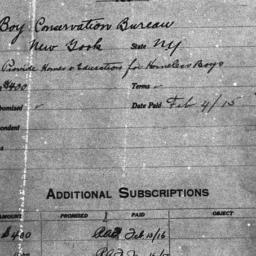 Boy Conservation Bureau
New York State NY
Provide Homes & Education for Homeless Boys
$400 Terms ✓
omised ✓ Date Paid Feb 4/15
pondent
s
ADDITIONAL SUBSCRIPTIONS
AMOUNT PROMISED PAID OBJECT
$400 Paid Feb 10/16